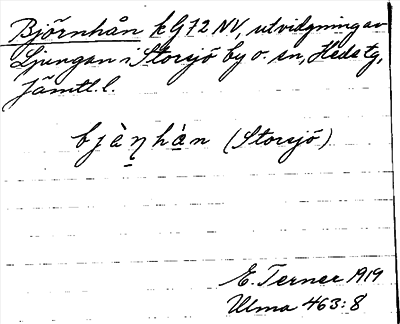 Björnhån k G 72 NV, utvidgning av
Ljungan i Storsjö by o. sn, Heds tg,
Jämtl. l.
bjæ̀ṇhàn (Storsjö)
E. Terner 1919
Ulma 463:8